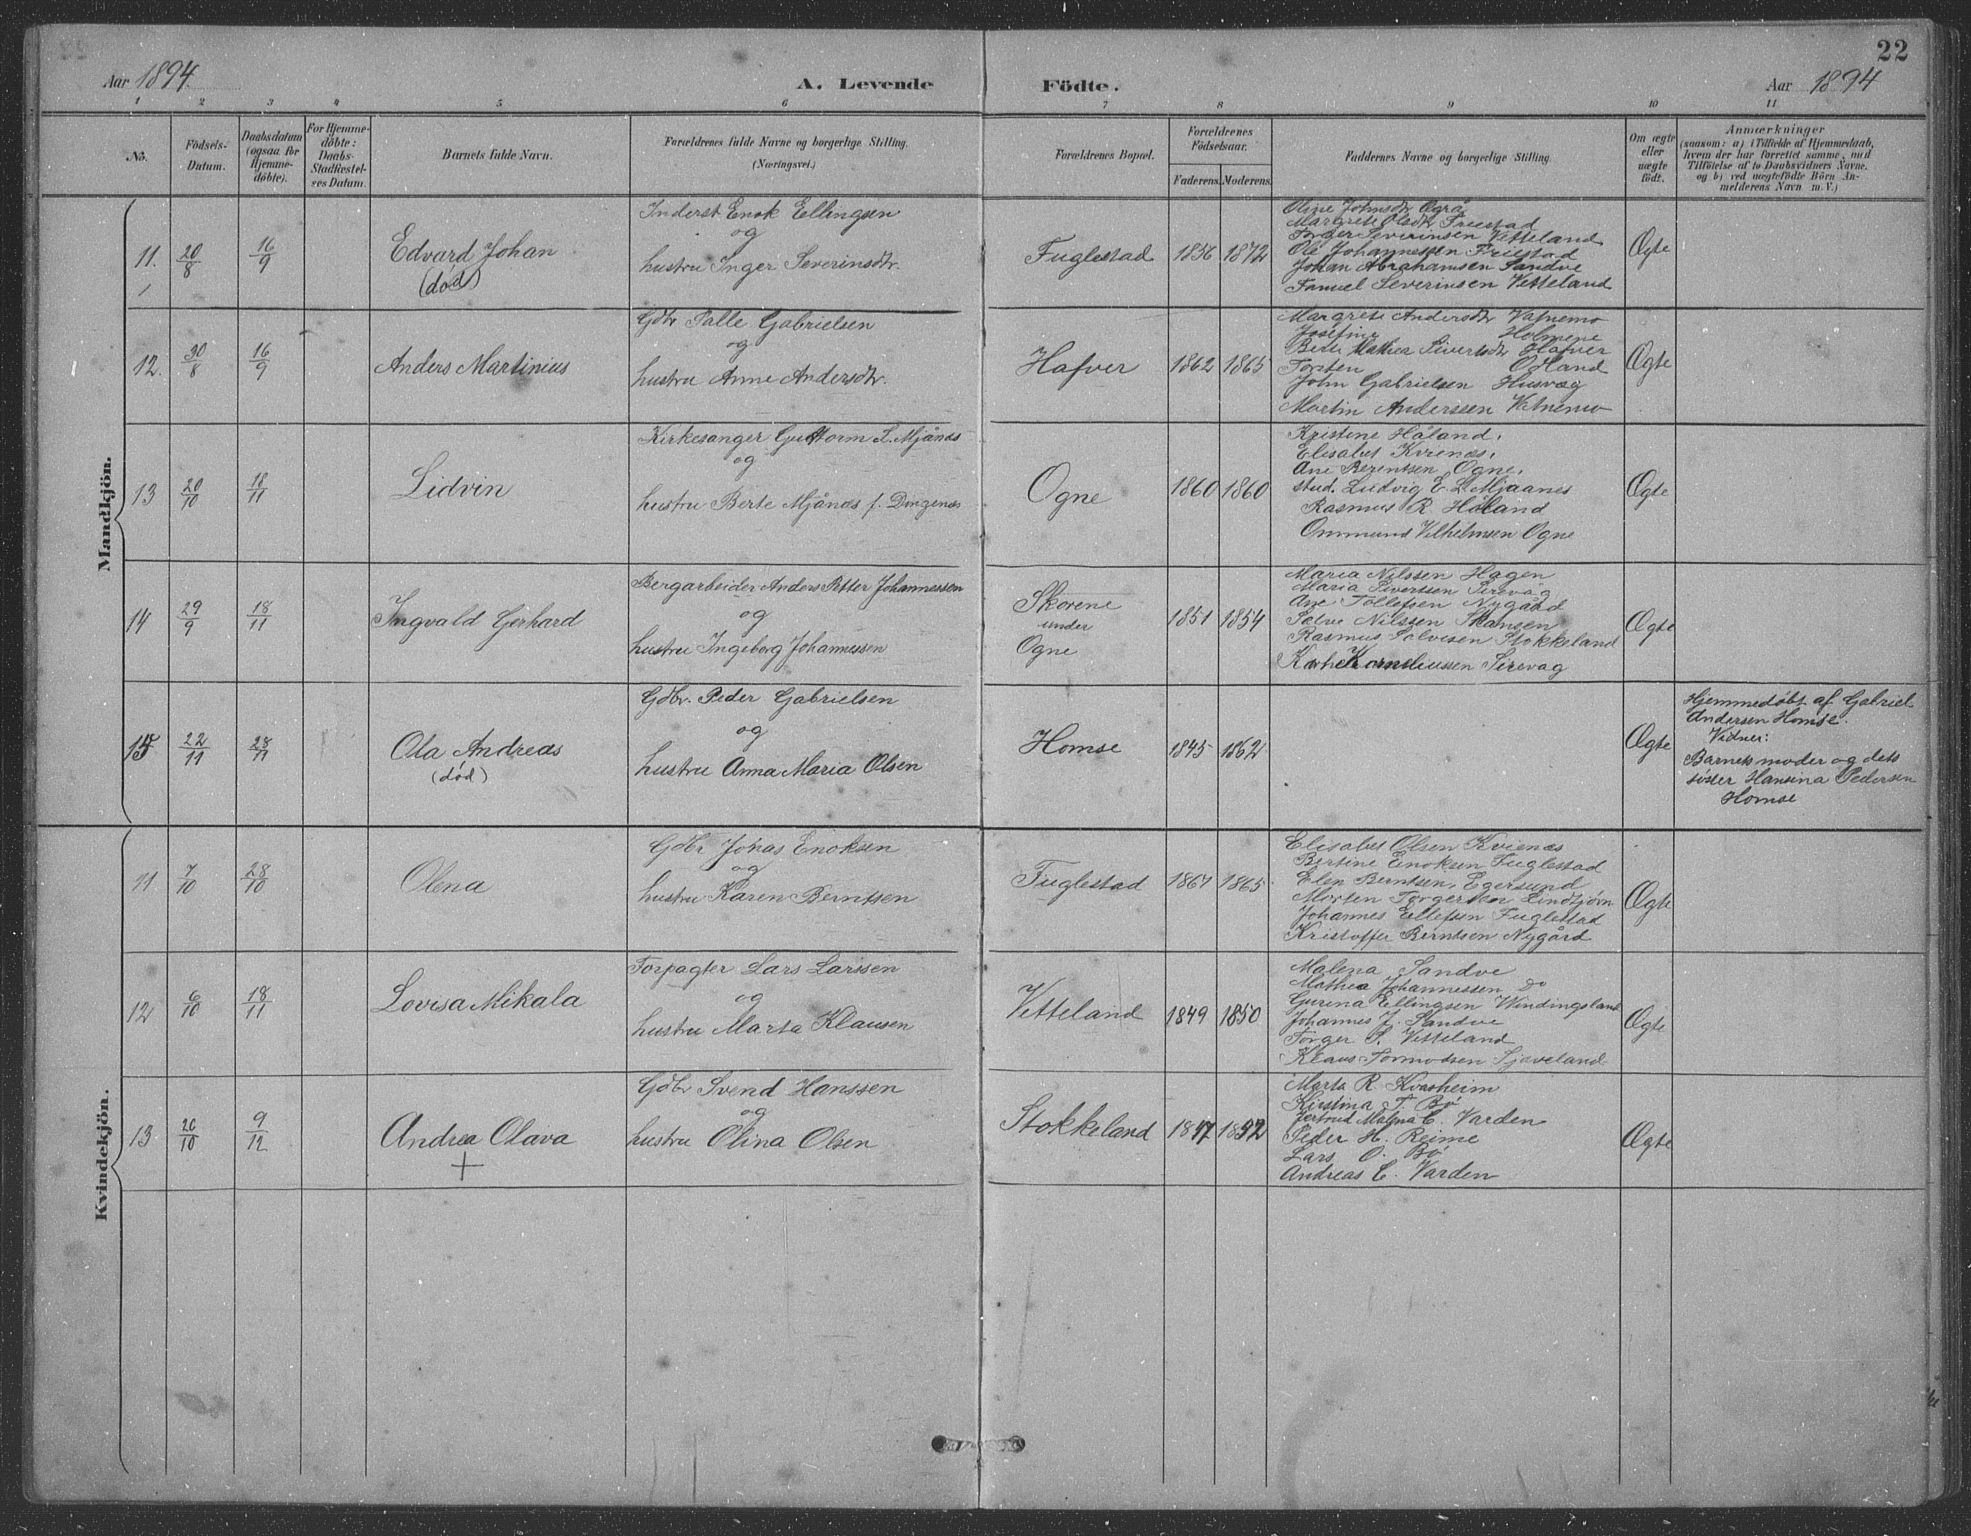 22
Aar 1894.
A. Levende Födte.
Aar 1894
1 2 3 4 5 6 7 8 9 10 11
No.
Födsels-
Datum.
Daabsdatum
(ogsaa for
Hjemme-
döbte).
For Hjemme-
döbte:
Daabs-
Stadfæstel-
ses Datum.
Barnets fulde Navn.
Forældrenes fulde Navne og borgerlige Stilling.
(Næringsvei.)
Forældrenes Bopæl.
Forældrenes
Födselsaar.
Faderens. Moderens.
Faddernes Navne og borgerlige Stilling.
Om ægte
eller
uægte
födt.
Anmærkninger
(saasom: a) i Tilfælde af Hjemmedaab,
hvem der har forrettet samme, med
Tilföielse af to Daabsvidners Navne,
og b) ved uægtefödte Börn An-
melderens Navn m. V.)
Mandkjön.
11. 20/8 16/9
Edvard Johan
(död)
Inderst Enok Ellingsen
og
hustru Inger Severinsdtr.
Fuglestad
1856 1872
Oline Johnsdtr Ogrå
Margrete Olsdtr Friestad
Torger Severinsen Vetteland
Ole Johannessen Friestad
Johan Abrahamsen Sandve
Samuel Severinsen Vetteland
Ægte
12. 30/8 16/9
Anders Martinius
Gdbr Palle Gabrielsen
og
hustru Anne Andersdtr.
Hafver
1862 1865
Margrete Andersdtr Vatnemo
Josefine Holmene
Berte Mathea Sivertsdtr Hafver
Torsten Odland
John Gabrielsen Husvæg
Martin Anderssen Vatnemo
Ægte
13 20/10 18/11
Lidvin
Kirkesanger Guttorm L. Mjånes
og
hustru Berte Mjånes f. Dingenes
Ogne
1860 1860
Kristine Håland.
Elisabet Kvienes.
Ane Berentsen Ogne.
stud. Ludvig E. L. Mjaanes
Rasmus R Håland
Ommund Vilhelmsen Ogne
Ægte
14 29/9 18/11
Ingvald Gerhard
Bergarbeider Anders Petter Johannessen
og
hustru Ingeborg Johannessen
Skorene
under
Ogne
1851 1854
Maria Nilssen Hagen
Maria Sivertsen Sirevåg
Ane Tollefsen Nygård
Salve Nilssen Skansen
Rasmus Salvesen Stokkeland
Korneliussen Sirevag
Ægte
15 22/11 28/11
Ola Andreas
(död)
Gdbr. Peder Gabrielsen
og
hustru Anna Maria Olsen
Homse
1845 1862
Ægte
Hjemmedøbt af Gabriel
Andersen Homse.
Vidner:
Barnets moder og dets
sister Hansina Pedersen
Homse
Kvindekjön.
11 7/10 28/10
Olena
Gdbr Jonas Enoksen
og
hustru Karen Berntsen
Fuglestad
1867 1865
Elisabet Olsen Kvienes
Bertine Enoksen Fuglestad
Elen Berntsen, Egersund
Morten Torgersen Lindtjørn
Johannes Ellefsen Fuglestad
Kristoffer Berntsen Nygård
Ægte
12 6/10 18/11
Lovisa Mikala
Forpagter Lars Larssen
og
hustru Marta Klausen
Vetteland
1849 1850
Malena Sandve
Mathea Johannessen Do
Gurina Ellingsen Windingsland
Johannes J. Sandve
Torger S. Vetteland
Klaus Tormodsen Sjaveland
Ægte
13 20/10 9/12
Andrea Olava
+
Gdbr Svend Hanssen
og
hustru Olina Olsen
Stokkeland
1847 1852
Marta R. Kvasheim
Kirstina T. Bø
Jertrud Malena C. Varden
Peder H. Reime
Lars O. Bø
Andreas C. Varden
Ægte